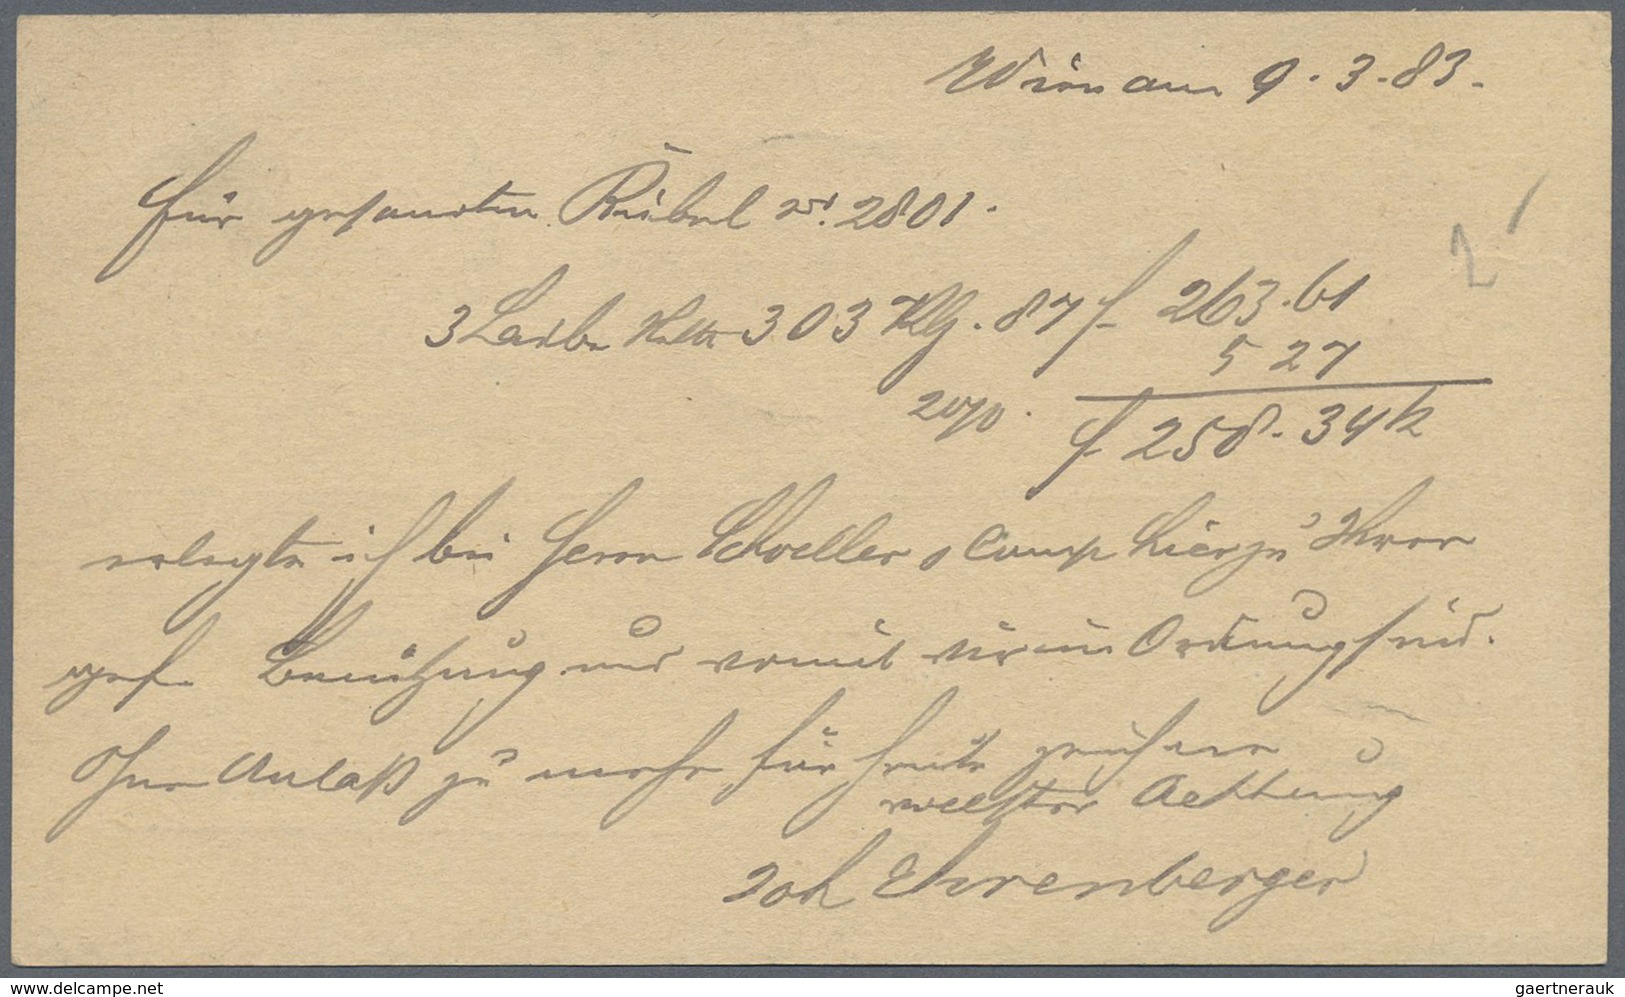 Wien am 9.3.83.
für gesandten Kübel No. 2801.
3 Laibe Netto 303 Klg. 87 f 263.61
5 27
2% f 258.34 k
erlegte ich bei Herrn Schoeller & Comp hier zu Ihrer
gef. Benützung und somit wir in Ordnung sind.
Ohne Anlaß zu mehr für heute zeichne
Achtung
Joh Ehrenberger
www.delcampe.net
gaertnerauk